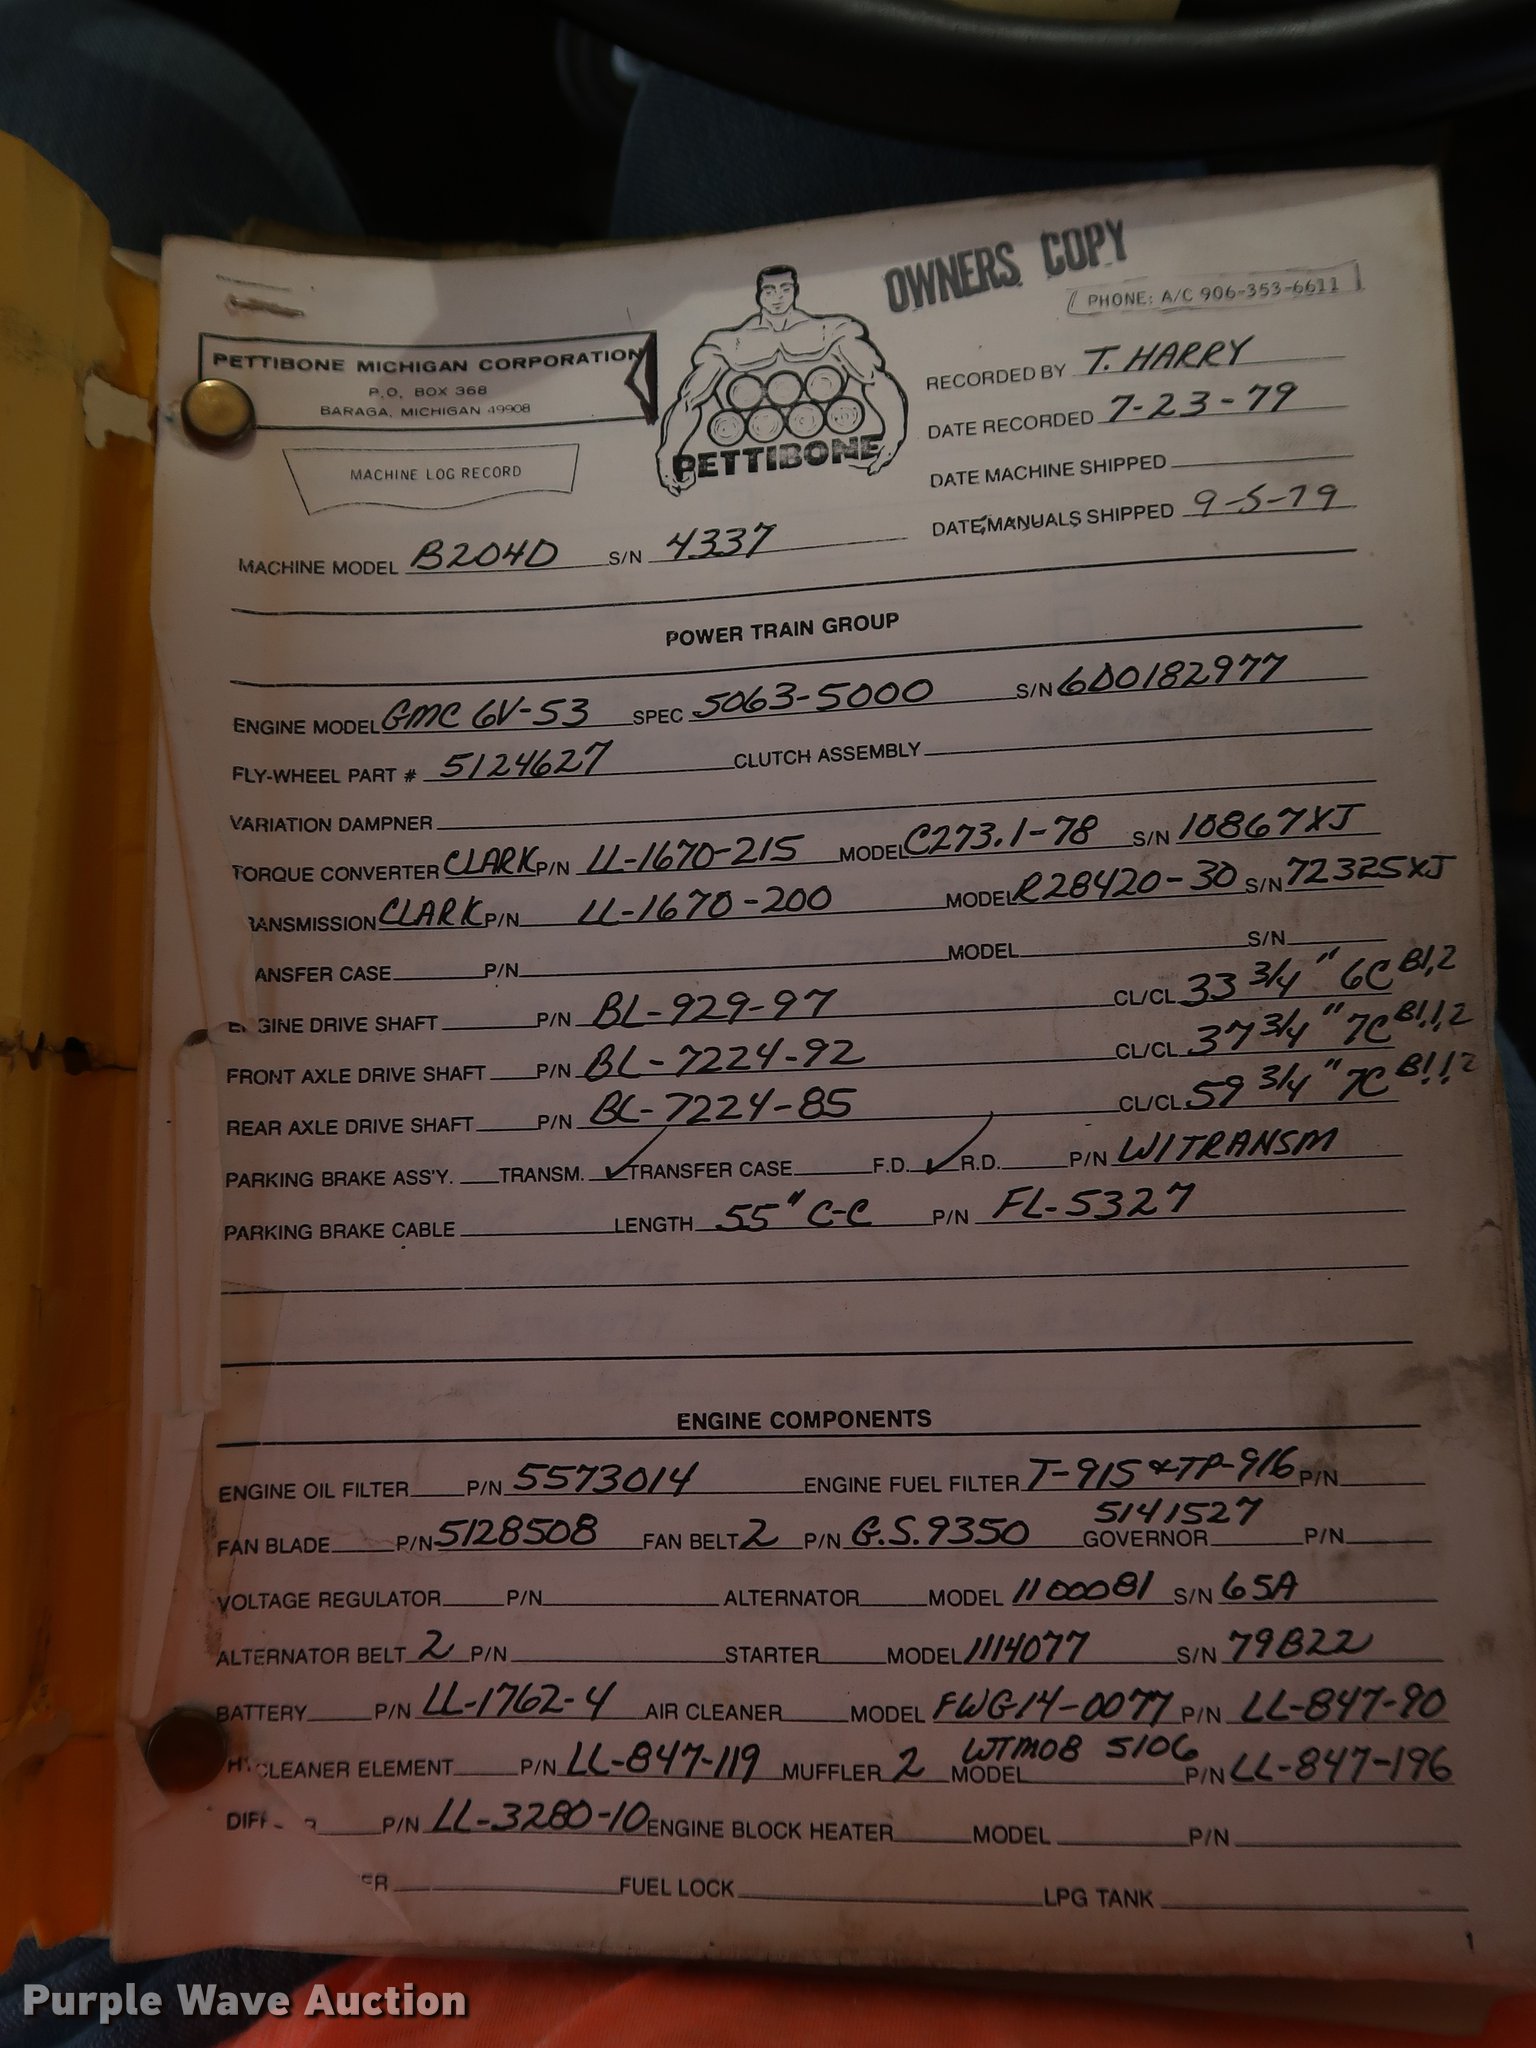 OWNERS COPY
PHONE: A/C 906-353-6611
PETTIBONE MICHIGAN CORPORATION
P.O. BOX 368
BARAGA, MICHIGAN 49908
MACHINE LOG RECORD
PETTIBONE
RECORDED BY T. HARRY
DATE RECORDED 7-23-79
DATE MACHINE SHIPPED
DATE MANUALS SHIPPED 9-5-79
MACHINE MODEL B204D S/N 4337
POWER TRAIN GROUP
ENGINE MODEL GMC 6V-53 SPEC 5063-5000 S/N 6D0182977
FLY-WHEEL PART # 5124627 CLUTCH ASSEMBLY
VARIATION DAMPNER
TORQUE CONVERTER CLARK P/N LL-1670-215 MODEL C273.1-78 S/N 10867XJ
RANSMISSION CLARK P/N LL-1670-200 MODEL R28420-30 S/N 72325XJ
ANSFER CASE P/N MODEL S/N
ENGINE DRIVE SHAFT P/N BL-929-97 CL/CL 33 3/4" 6C B1,2
FRONT AXLE DRIVE SHAFT P/N BL-7224-92 CL/CL 37 3/4" 7C B1,1,2
REAR AXLE DRIVE SHAFT P/N BL-7224-85 CL/CL 59 3/4" 7C B1,1,2
PARKING BRAKE ASS'Y. TRANSM. ✓ TRANSFER CASE F.D. ✓ R.D. P/N W/TRANSM
PARKING BRAKE CABLE LENGTH 55" C-C P/N FL-5327
ENGINE COMPONENTS
ENGINE OIL FILTER P/N 5573014 ENGINE FUEL FILTER T-915 & TP-916 P/N
FAN BLADE P/N 5128508 FAN BELT 2 P/N G.S.9350 GOVERNOR 5141527 P/N
VOLTAGE REGULATOR P/N ALTERNATOR MODEL 1100081 S/N 65A
ALTERNATOR BELT 2 P/N STARTER MODEL 1114077 S/N 79B22
BATTERY P/N LL-1762-4 AIR CLEANER MODEL FWG14-0077 P/N LL-847-90
CLEANER ELEMENT P/N LL-847-119 MUFFLER 2 MODEL WTM08 5106 P/N LL-847-196
DIFF R P/N LL-3280-10 ENGINE BLOCK HEATER MODEL P/N
ER FUEL LOCK LPG TANK
1
Purple Wave Auction